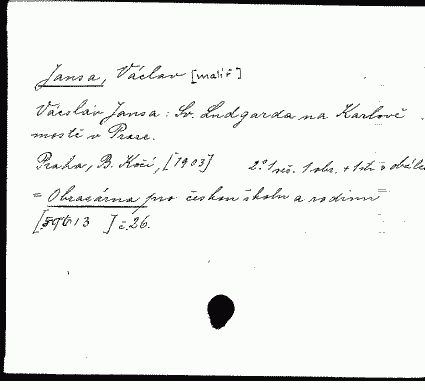 Jansa, Václav [malíř]
Václav Jansa: Sv. Ludgarda na Karlově
mostě v Praze.
Praha, B. Kočí, [1903] 2.° 1 seš. 1 obr. + 1 str. v obálce
= Obrazárna pro českou školu a rodinu =
[59613 ] č. 26.